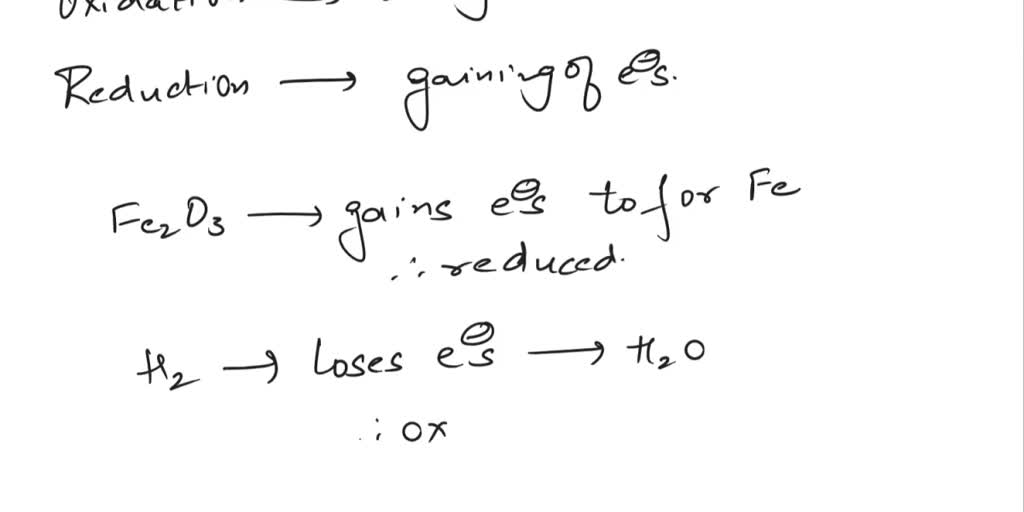 Reduction → gaining of e⊖s.
Fe₂O₃ → gains e⊖s to for Fe
∴ reduced.
H₂ → Loses e⊖s → H₂O
∴ ox